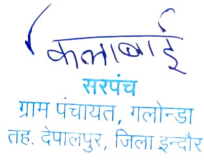 कलाबाई
सरपंच
ग्राम पंचायत, गलोन्डा
तह. देपालपुर, जिला इन्दौर